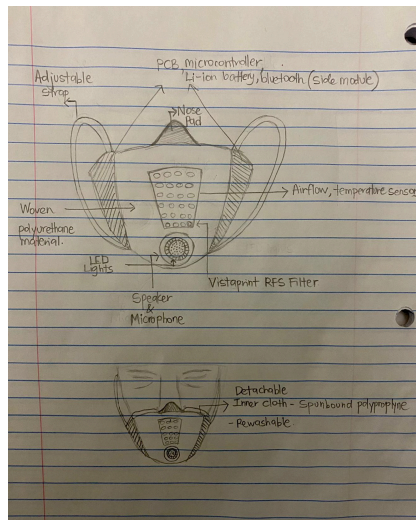 PCB, microcontroller,
Li-ion battery, bluetooth (side module)
Adjustable
strap
Nose
Pad
Airflow, temperature sensor
Woven
polyurethane
material.
LED
Lights
Vistaprint RFS Filter
Speaker
&
Microphone
Detachable
Inner cloth - Spunbound polypropyline
- Rewashable